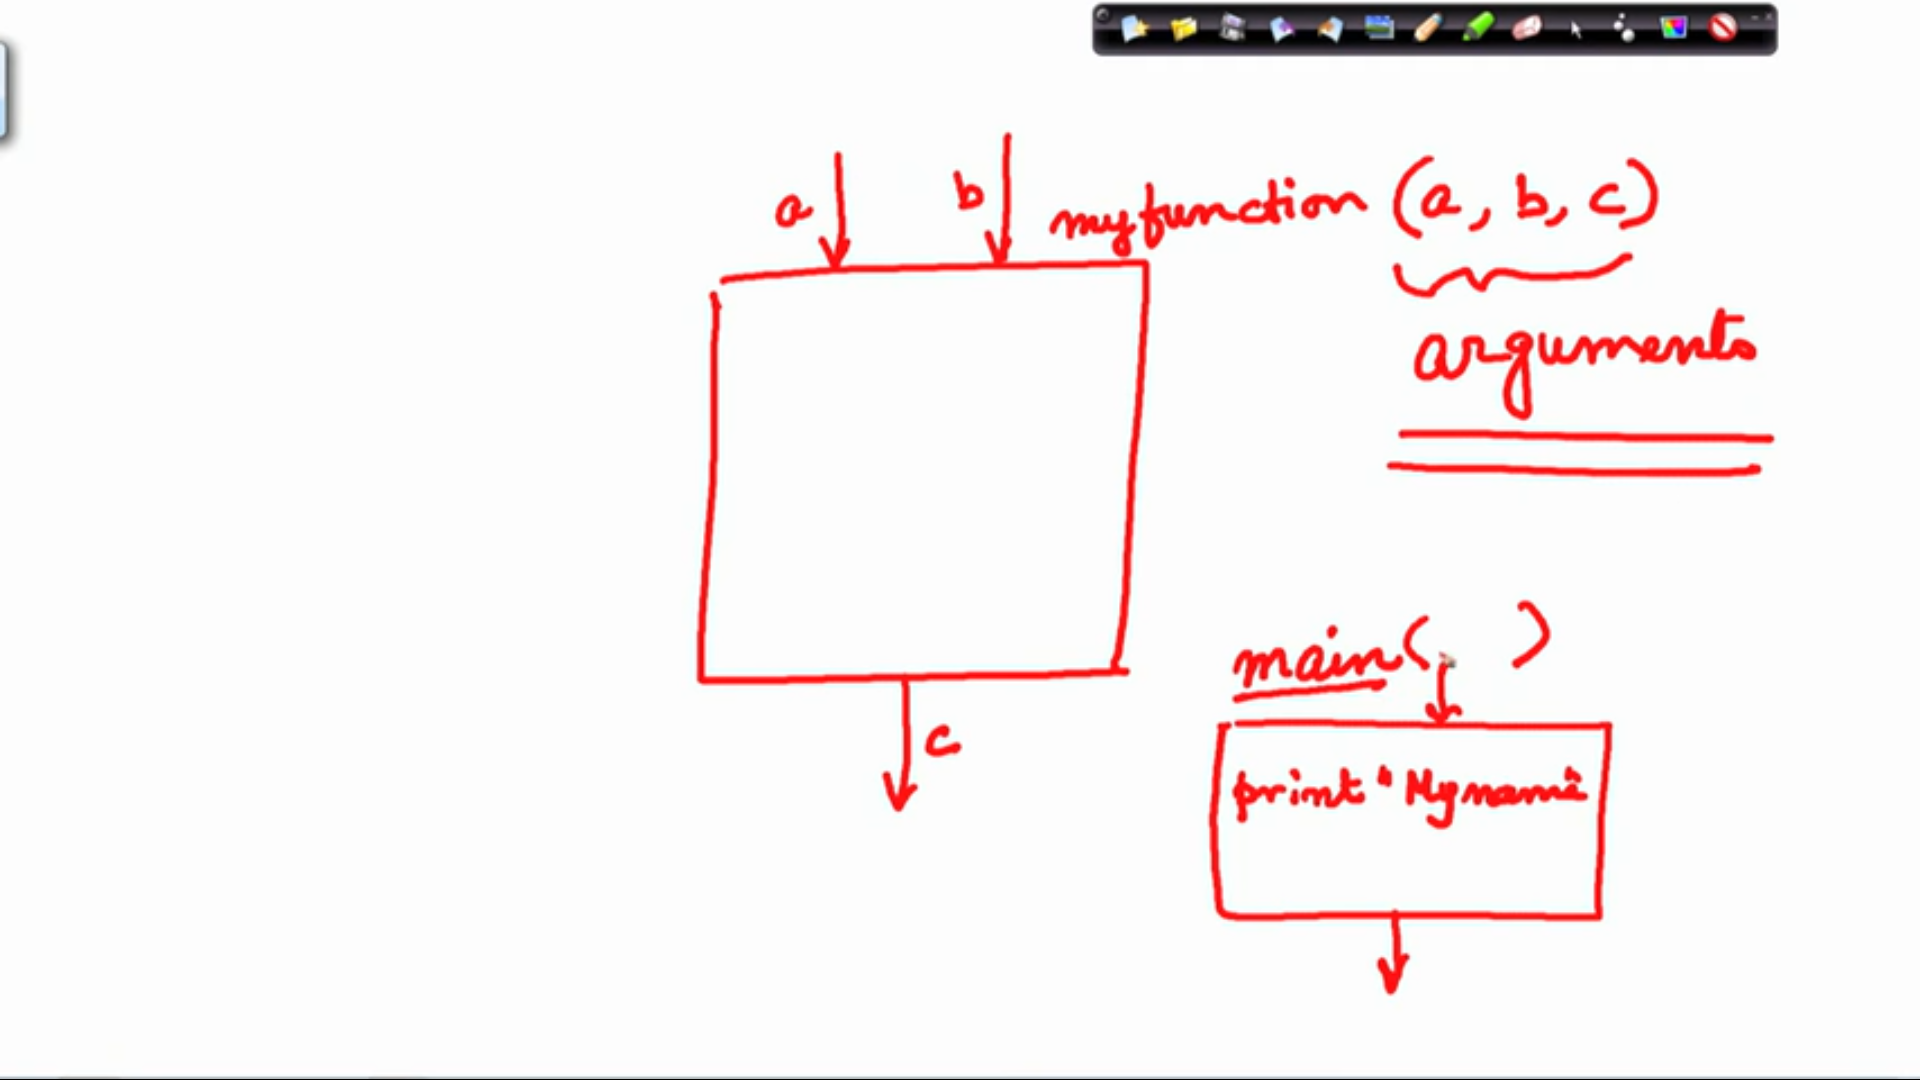 a
b
myfunction (a, b, c)
arguments
main( )
print "My name"
c